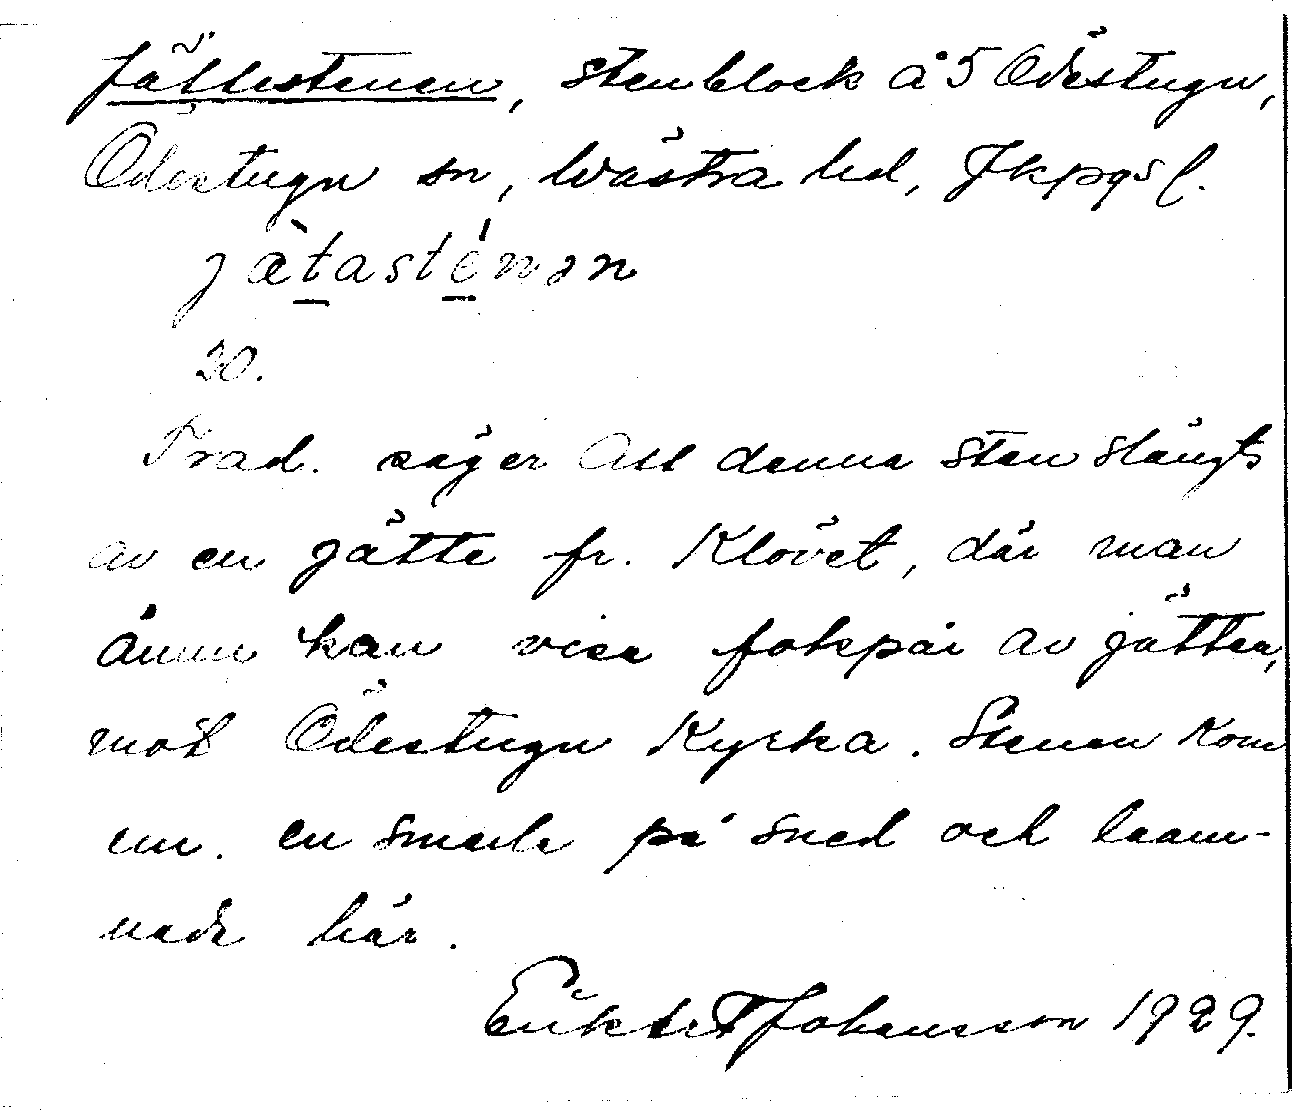 Jättestenen, stenblock å 5 Ödestugu,
Ödestugu sn, Västra hd, Jkpgs l.
jätasténən
30.
Trad. säger att denna sten slängts
av en jätte fr. Klövet, där man
ännu kan visa fotspår av jätten,
mot Ödestugu Kyrka. Stenen kom
em. en smula på sned och hamn-
nade här.
Johansson 1929.